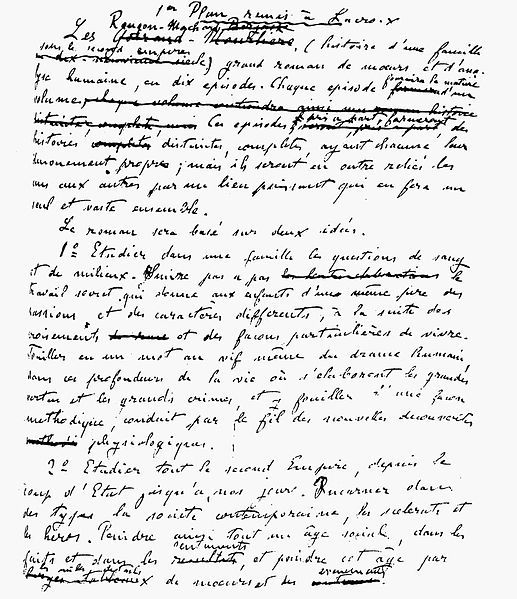 1er Plan remis à Lacroix
Les Rougon-Macquart (histoire d'une famille
sous le second empire) grand roman de mœurs et d'ana-
lyse humaine, en dix episodes. Chaque episode fournira la matière d'un
volume. Ces episodes, pris à part, formeront des
histoires distinctes, complètes, ayant chacune leur
denouement propre ; mais ils seront en outre reliés les
uns aux autres par un lien puissant qui en fera un
seul et vaste ensemble.
Le roman sera basé sur deux idées.
1o Etudier dans une famille les questions de sang
et de milieux. Suivre pas a pas le
travail secret qui donne aux enfants d'un même père des
passions et des caractères differents, à la suite des
croisements et des façons particulières de vivre.
Fouiller en un mot au vif même du drame humain,
dans ces profondeurs de la vie où s'élaborent les grandes
vertus et les grands crimes, et y fouiller d'une façon
methodique, conduit par le fil des nouvelles découvertes
physiologiques.
2o Etudier tout le second Empire, depuis le
coup d'Etat jusqu'à nos jours. Incarner dans
des types la société contemporaine, les scelerats et
les héros. Peindre ainsi tout un âge social, dans les
faits et dans les sentiments, et peindre cet âge par
les mille détails de mœurs et des evenements.